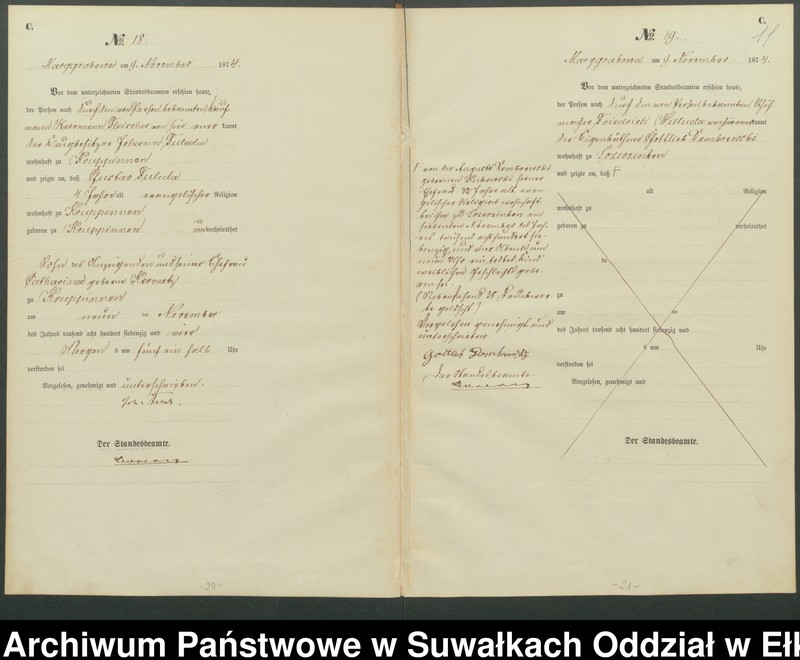 C.
№ 18
Marggrabowa am 9. November 1874.
Vor dem unterzeichneten Standesbeamten erschien heute,
der Person nach durch den von Person bekannten Kauf-
mann Herrmann Fleischer von hier aner kannt
der Krugbesitzer Johann
wohnhaft zu Kruppinnen
und zeigte an, daß Gustav
4 Jahre alt evangelischer Religion
wohnhaft zu Kruppinnen
geboren zu Kruppinnen unverheirathet
Sohn des Anzeigenden und seiner Ehefrau
Catharina geborne
zu Kruppinnen
am neun ten November
des Jahres tausend acht hundert siebenzig und vier
Morgens um fünf ein halb Uhr
verstorben sei
Vorgelesen, genehmigt und unterschrieben.
Der Standesbeamte.
-20-
C.
11
№ 19.
Marggrabowa am 9. November 1874
Vor dem unterzeichneten Standesbeamten erschien heute,
der Person nach durch den von Person bekannten Schuh-
macher Friedrich von hier anerkannt
der Eigenkäthner Gottlieb Dombrowski
wohnhaft zu
und zeigte an, daß F
F von der Auguste Dombrowski
gebornen seiner
Ehefrau 32 Jahre alt evan-
gelischer Religion wohnhaft
bei ihm zu am
siebenten November des Jah-
res tausend achthundert sie-
benzig und vier Abends um
neun Uhr ein todtes Kind
weiblichen Geschlechts gebo-
ren sei.
(Nebenstehend 38 Druckwor-
te gelöscht)
Vorgelesen genehmigt und
unterschrieben
Gottlieb Dombrowski
Der Standesbeamte.
alt Religion
wohnhaft zu
geboren zu verheirathet
de
zu
am ten
des Jahres tausend acht hundert siebenzig und
s um Uhr
verstorben sei
Vorgelesen, genehmigt und
Der Standesbeamte.
-21-
Archiwum Państwowe w Suwałkach Oddział w Ełk